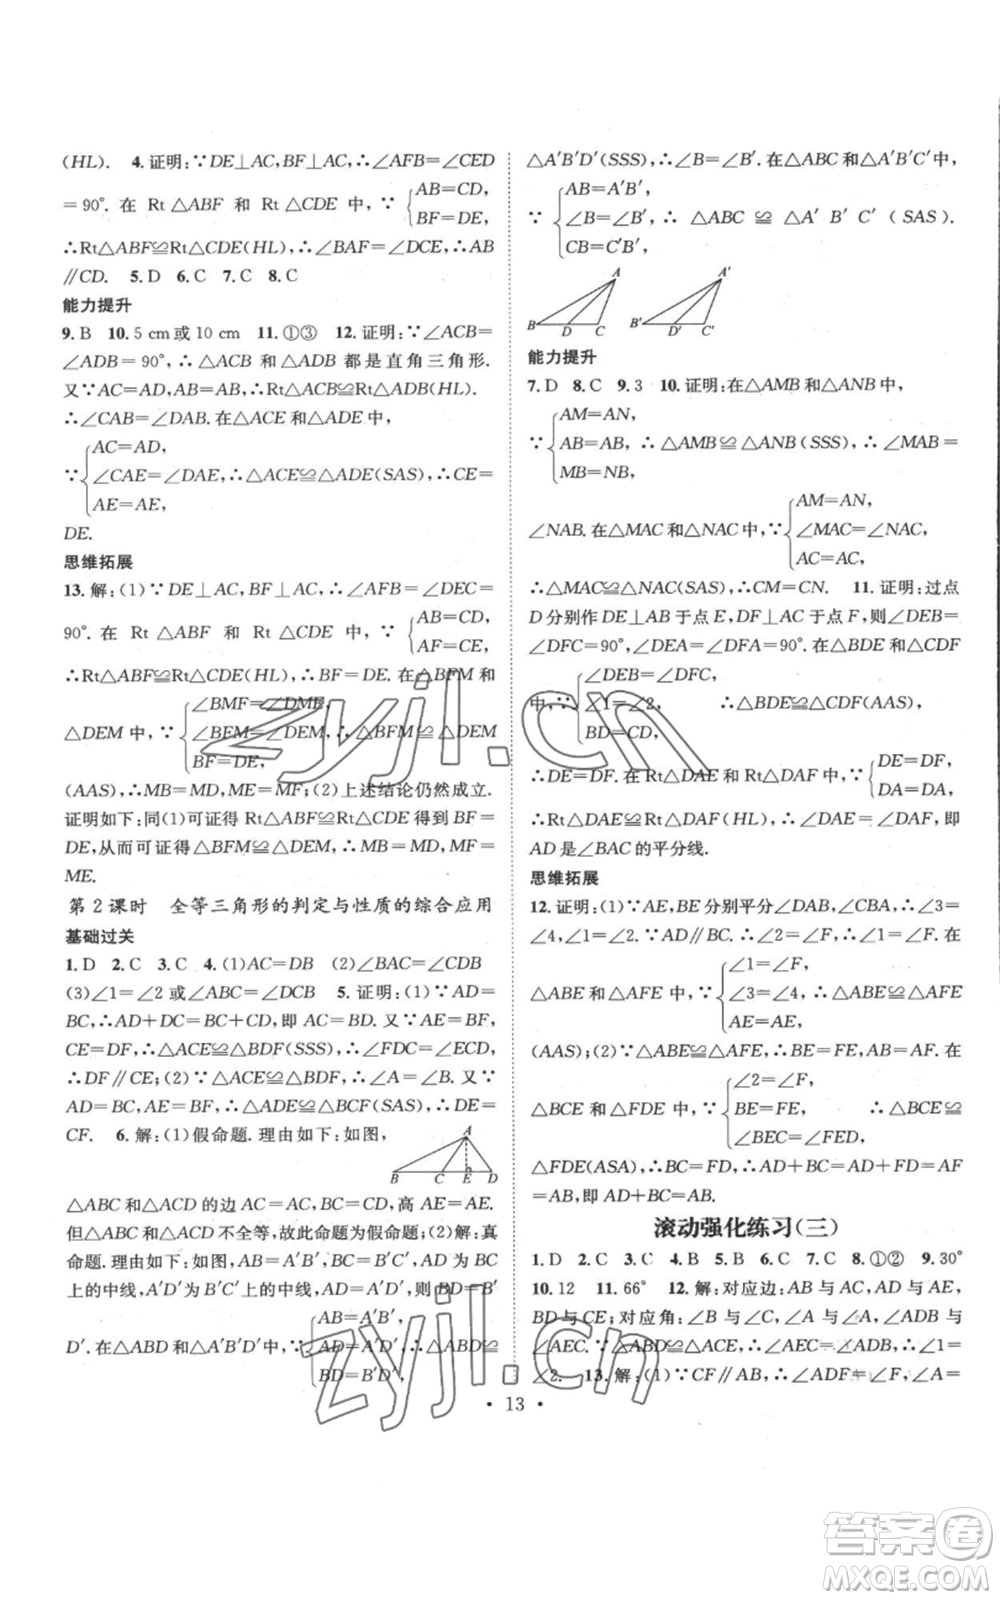 (HL). 4.证明:∵DE⊥AC,BF⊥AC,∴∠AFB=∠CED
=90°. 在 Rt △ABF 和 Rt △CDE 中, ∵ { AB=CD, BF=DE,
∴Rt△ABF≌Rt△CDE(HL),∴∠BAF=∠DCE,∴AB
∥CD. 5.D 6.C 7.C 8.C
能力提升
9.B 10.5 cm或10 cm 11.①③ 12.证明:∵∠ACB
=∠ADB=90°,∴△ACB 和△ADB 都是直角三角形.
又∵AC=AD,AB=AB,∴Rt△ACB≌Rt△ADB(HL).
∴∠CAB=∠DAB.在△ACE 和△ADE 中,
∵ { AC=AD, ∠CAE=∠DAE, AE=AE, ∴△ACE≌△ADE(SAS),∴CE=
DE.
思维拓展
13.解:(1)∵DE⊥AC,BF⊥AC,∴∠AFB=∠DEC=
90°. 在 Rt △ABF 和 Rt △CDE 中, ∵ { AB=CD, AF=CE,
∴Rt△ABF≌Rt△CDE(HL),∴BF=DE.在△BFM 和
△DEM 中,∵ { ∠BMF=∠DME, ∠BFM=∠DEM, BF=DE, ∴△BFM≌△DEM
(AAS),∴MB=MD,ME=MF;(2)上述结论仍然成立.
证明如下:同(1)可得 Rt△ABF≌Rt△CDE 得到BF=
DE,从而可证得△BFM≌△DEM,∴MB=MD,MF=
ME.
第2课时 全等三角形的判定与性质的综合应用
基础过关
1.D 2.C 3.C 4.(1)AC=DB (2)∠BAC=∠CDB
(3)∠1=∠2 或∠ABC=∠DCB 5.证明:(1)∵AD=
BC,∴AD+DC=BC+CD,即 AC=BD.又∵AE=BF,
CE=DF,∴△ACE≌△BDF(SSS),∴∠FDC=∠ECD,
∴DF∥CE;(2)∵△ACE≌△BDF,∴∠A=∠B.又∵
AD=BC,AE=BF,∴△ADE≌△BCF(SAS),∴DE=
CF. 6.解:(1)假命题.理由如下:如图,
A
B C E D
△ABC 和△ACD 的边 AC=AC,BC=CD,高 AE=AE.
但△ABC 和△ACD 不全等,故此命题为假命题;(2)解:真
命题.理由如下:如图,AB=A′B′,BC=B′C′,AD 为 BC
上的中线,A′D′为 B′C′上的中线,AD=A′D′,则 BD=B′
D′.在△ABD 和△A′B′D′中,∵ { AB=A′B′, AD=A′D′, BD=B′D′, ∴△ABD≌
△A′B′D′(SSS),∴∠B=∠B′.在△ABC 和△A′B′C′中,
∵ { AB=A′B′, ∠B=∠B′, CB=C′B′, ∴ △ABC ≌ △A′ B′ C′ (SAS).
A A′
B D C B′ D′ C′
能力提升
7.D 8.C 9.3 10.证明:在△AMB 和△ANB 中,
∵ { AM=AN, AB=AB, MB=NB, ∴△AMB≌△ANB(SSS),∴∠MAB=
∠NAB.在△MAC 和△NAC 中,∵ { AM=AN, ∠MAC=∠NAC, AC=AC,
∴△MAC≌△NAC(SAS),∴CM=CN. 11.证明:过点
D 分别作 DE⊥AB 于点 E,DF⊥AC 于点 F,则∠DEB=
∠DFC=90°,∠DEA=∠DFA=90°.在△BDE 和△CDF
中,∵ { ∠DEB=∠DFC, ∠1=∠2, BD=CD, ∴△BDE≌△CDF(AAS),
∴DE=DF.在 Rt△DAE 和 Rt△DAF 中,∵ { DE=DF, DA=DA,
∴Rt△DAE≌Rt△DAF(HL),∴∠DAE=∠DAF,即
AD 是∠BAC 的平分线.
思维拓展
12.证明:(1)∵AE,BE 分别平分∠DAB,∠CBA,∴∠3=
∠4,∠1=∠2.∵AD∥BC.∴∠2=∠F,∴∠1=∠F.在
△ABE 和△AFE 中,∵ { ∠1=∠F, ∠3=∠4, AE=AE, ∴△ABE≌△AFE
(AAS);(2)∵△ABE≌△AFE,∴BE=FE.在
△BCE 和△FDE 中,∵ { ∠2=∠F, BE=FE, ∠BEC=∠FED, ∴△BCE≌
△FDE(ASA),∴BC=FD,∴AD+BC=AD+FD=AF
=AB,即 AD+BC=AB.
滚动强化练习(三)
1.D 2.C 3.C 4.B 5.B 6.C 7.C 8.①② 9.30°
10.12 11.66° 12.解:对应边:AB 与 AC,AD 与 AE,
BD 与 CE;对应角:∠B 与∠C,∠1 与∠2,∠ADB 与
∠AEC.∵△ABD≌△ACE,∴∠AEC=∠ADB,∴∠1=
∠2. 13.解:(1)∵CF∥AB,∴∠B=∠FCD,∠A=
• 13 •
zyjl.cn
zyjl.cn
答案圈
MXQE.COM